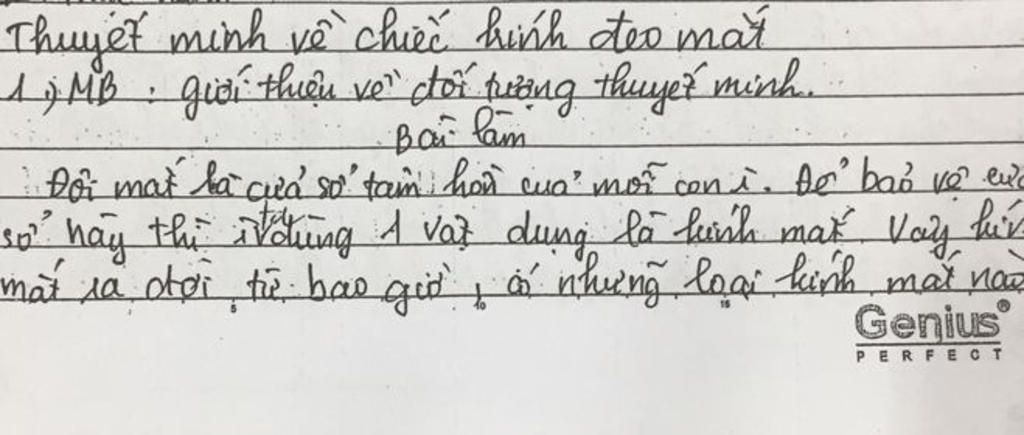 Thuyết minh về chiếc kính đeo mắt
1, MB : giới thiệu về đối tượng thuyết minh.
Bài làm
Đôi mắt là cửa sổ tâm hồn của mỗi con i. Để bảo vệ cửa
sổ này thì i ta dùng 1 vật dụng là kính mắt. Vậy kín
mắt ra đời từ bao giờ, có những loại kính mắt nào
5 10 15
Genius®
PERFECT